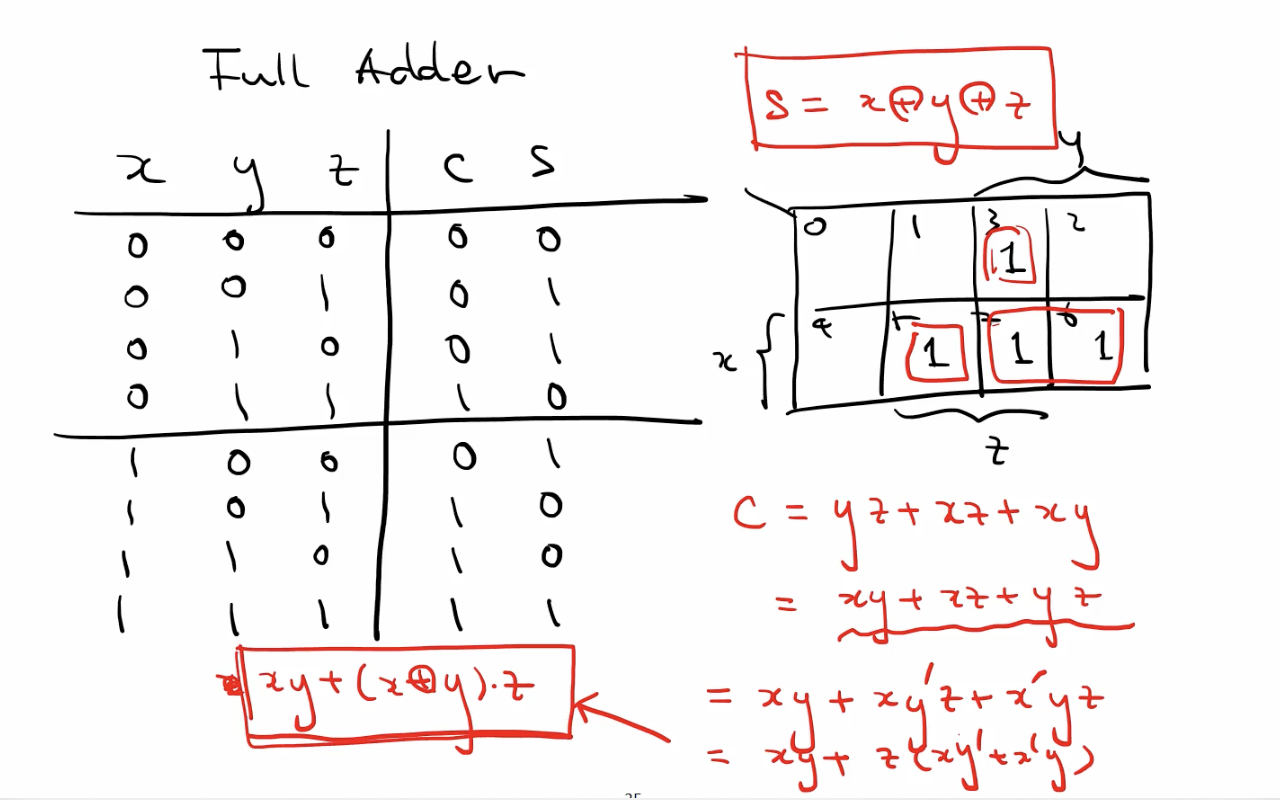 Full Adder
x y z C S
0 0 0 0 0
0 0 1 0 1
0 1 0 0 1
0 1 1 1 0
1 0 0 0 1
1 0 1 1 0
1 1 0 1 0
1 1 1 1 1
xy + (x⊕y)·z
S = x⊕y⊕z
y
0 1 3 2
1
x
4 5 7 6
1 1 1
z
C = yz + xz + xy
= xy + xz + yz
= xy + xy'z + x'yz
= xy + z(xy' + x'y)